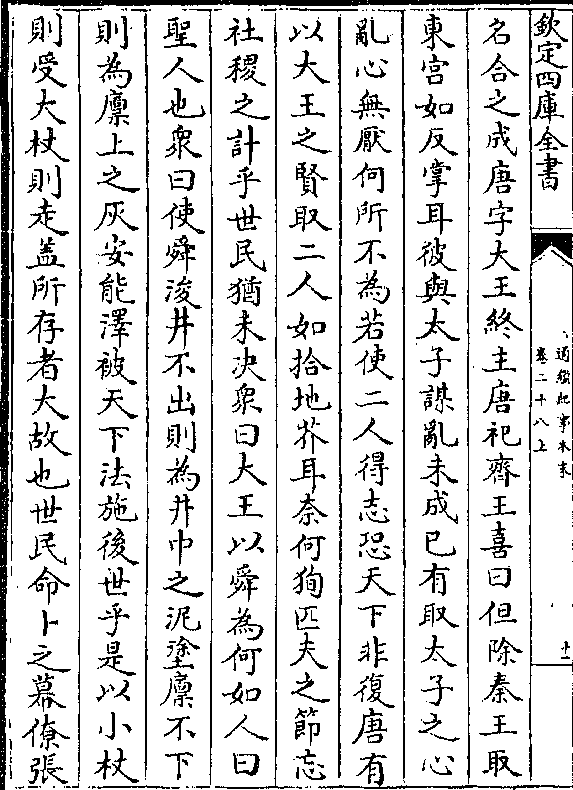 欽定四庫全書
通鑑紀事本末
卷二十八上
十一
名合之成唐字大王終主唐祀齊王喜曰但除秦王取
東宮如反掌耳彼與太子謀亂未成已有取太子之心
亂心無厭何所不為若使二人得志恐天下非復唐有
以大王之賢取二人如拾地芥耳奈何狥匹夫之節忘
社稷之計乎世民猶未决衆曰大王以舜為何如人曰
聖人也衆曰使舜浚井不出則為井中之泥塗廩不下
則為廩上之灰安能澤被天下法施後世乎是以小杖
則受大杖則走盖所存者大故也世民命卜之幕僚張